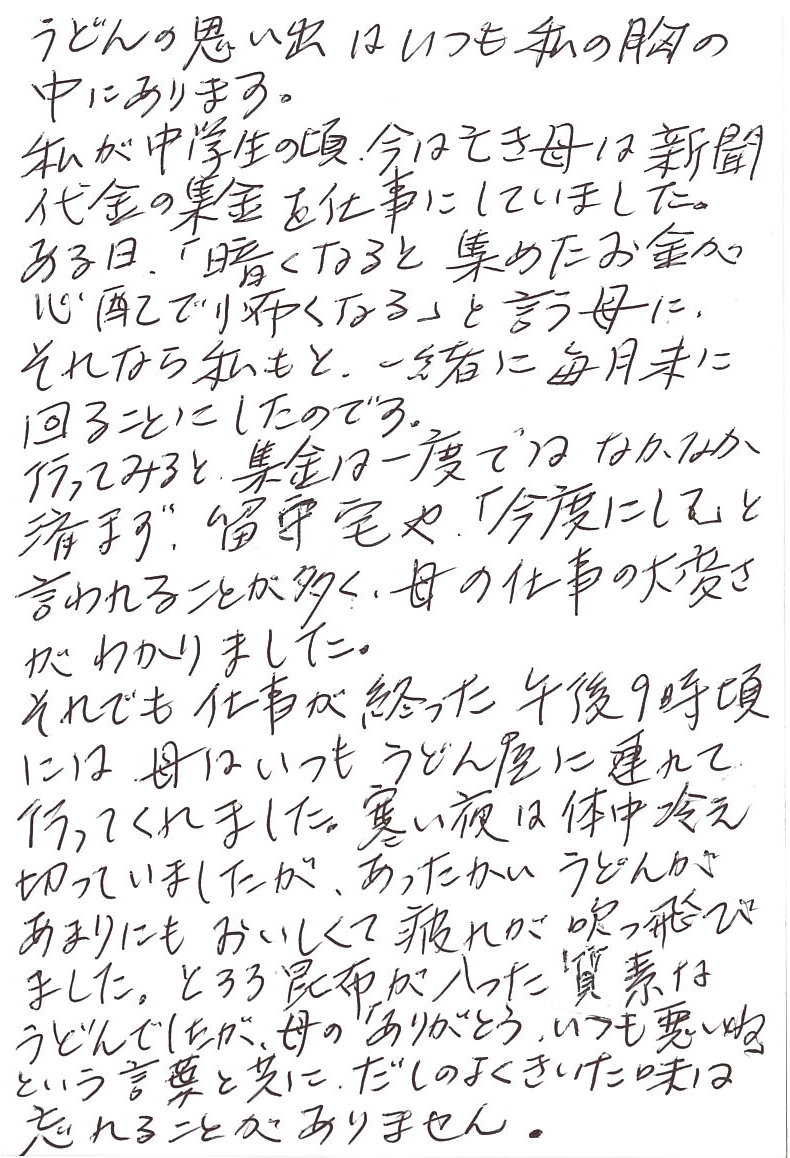 うどんの思い出はいつも私の胸の
中にあります。
私が中学生の頃、今は亡き母は新聞
代金の集金を仕事にしていました。
ある日、「暗くなると集めたお金が
心配で怖くなる」と言う母に、
それなら私もと、一緒に毎月末に
回ることにしたのです。
行ってみると、集金は一度ではなかなか
済まず、留守宅や、「今度にして」と
言われることが多く、母の仕事の大変さ
がわかりました。
それでも仕事が終った午後9時頃
には母はいつもうどん屋に連れて
行ってくれました。寒い夜は体中冷え
切っていましたが、あったかいうどんが
あまりにもおいしくて疲れが吹っ飛び
ました。とろろ昆布が入った質素な
うどんでしたが、母の「ありがとう、いつも悪いね」
という言葉と共に、だしのよくきいた味は
忘れることがありません。